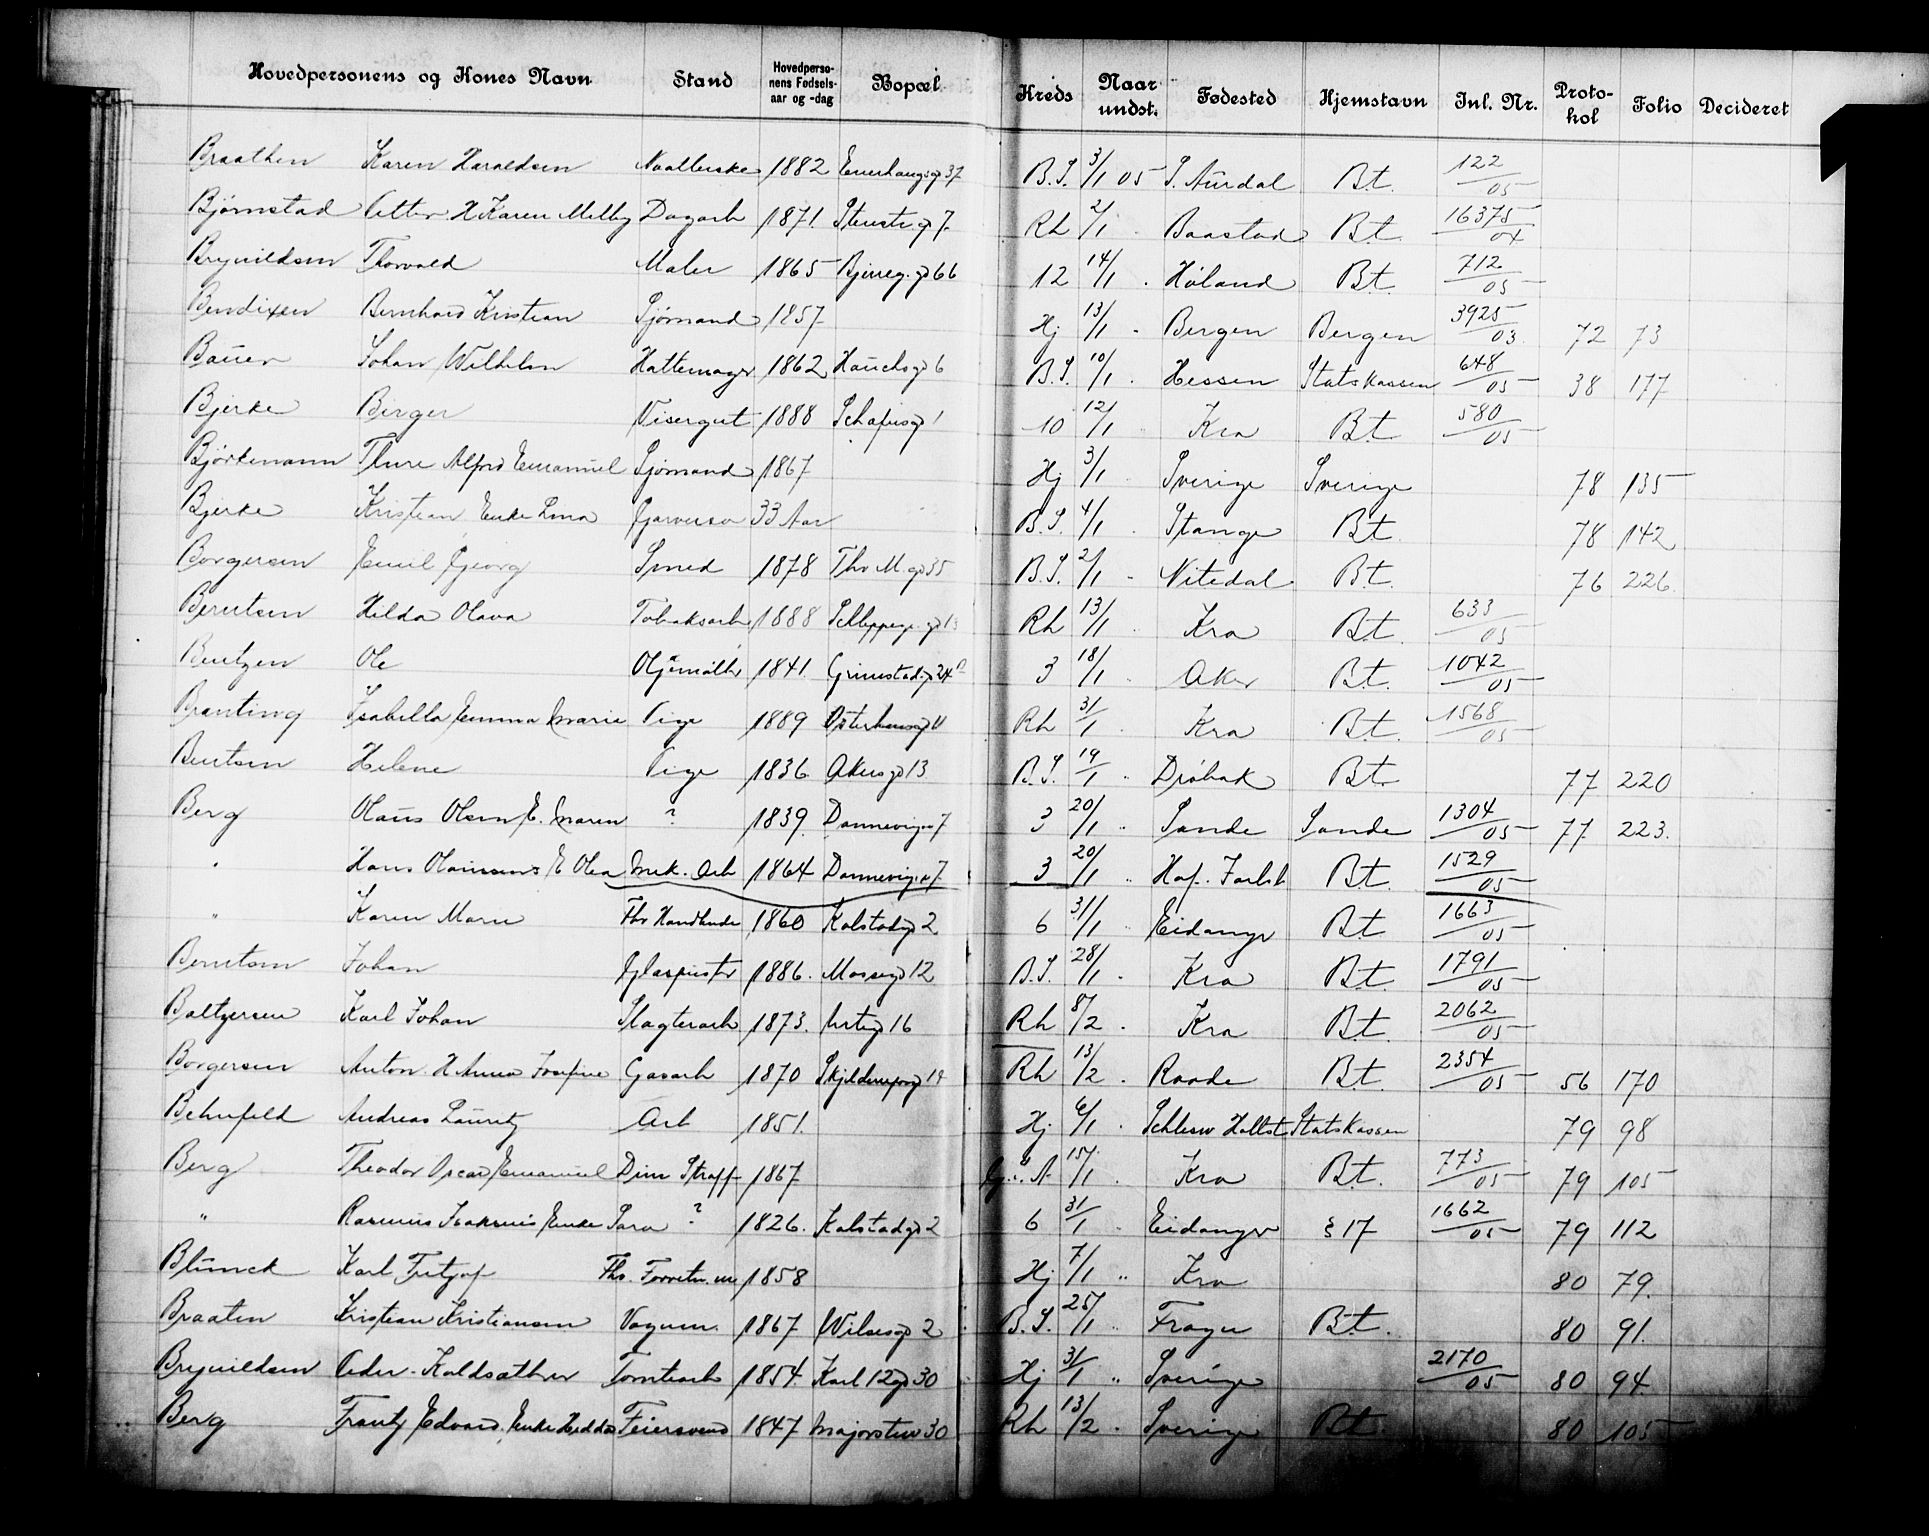 Hovedpersonens og Kones Navn Stand Hovedpersonens Fødselsaar og -dag Bopæl Kreds Naar undst. Fødested Hjemstavn Inl. Nr. Protokol Folio Decideret
Braathen Karen Haraldsen 1882 37 B.S. 3/1 05 S. Aurdal Bt. 122/05
Bjørnstad H. Karen Melby Dagarb 1871. 7 Rh 2/1 Baastad Bt. 16375/04
Brynildsen Thorvald Maler 1865 66 12 14/1 Høland Bt. 712/05
Bendixen Bernhard Kristian Sjømand 1857 Hj 13/1 Bergen Bergen 3925/03 72 73
Bauer Johan Wilhelm Hattemager 1862 Hauchsgd 6 B.S. 10/1 Hessen Statskassen 648/05 38 177
Bjerke Birger Visergut 1888 1 10 12/1 Kra Bt 580/05
Björkmann Thure Alfred Emanuel Sjømand 1867 Hj 3/1 Sverige Sverige 78 135
Bjerke Kristian, Enke Lina 33 Aar B.S. 4/1 Stange Bt 78 142
Borgersen Emil Georg Smed 1878 Thv M. gd 35 B.S. 2/1 Nitedal Bt. 76 226
Berntsen Hilda Olava Tobaksarb 1888 13 Rh 13/1 Kra Bt. 633/05
Bentzen Ole 1841. Grimstadgd 24 3 18/1 Aker Bt. 1042/05
Branting Isabella Emma Marie Pige 1889 Østerhausgd 11 Rh 31/1 Kra Bt. 1568/05
Bentsen Helene Pige 1836 Akersgd 13 B.S. 19/1 Drøbak Bt. 77 220
Berg Olaus Olsen E. Maren ? 1839. Dannevigsv 7 3 20/1 Sande Sande 1304/05 77 223.
" Hans E Olea Mek. Arb 1864 Dannevigsv 7 3 20/1 Hof. Jarlsb Bt. 1529/05
" Karen Marie Fhv Handlende 1860 Kalstadgd 2 6 31/1 Eidanger Bt 1663/05
Berntsen Johan Glaspuster 1886. Mossegd 12 B.S. 28/1 Kra Bt. 1791/05
Baltzersen Karl Johan Slagterarb 1873. Urtegd 16 Rh 8/2 Kra Bt. 2062/05
Borgersen Anton. H. Anna Josefine Gasarb 1870 19 Rh 13/2 Raade Bt. 2354/05 56 170
Behnfeld Andreas Lauritz Arb 1851. Hj. 6/1 Schlesw Holst Statskassen 79 98
Berg Theodor Oscar Emanuel Dim Straff 1867 15/1 Kra Bt. 773/05 79 105
" Rasmus Enke Sara ? 1826. Kalstadgd 2 6 31/1 Eidanger § 17 1662/05 79 112
Blunck Karl Fritjof Fhv. 1858 Hj 7/1 " Kra 80 79.
Braaten Kristian Kristiansen Vognm. 1867 Wilsesgd 2 B.S. 25/1 Frogn Bt. 80 91.
Brynildsen Tomtearb 1854. Karl 12gd 30 Hj 31/1 " Sverige 2170/05 80 94
Berg Frantz Edvard, Enke Hedda Feiersvend 1847 Majorstuv 30 Rh 13/2 Sverige Bt. 80 105